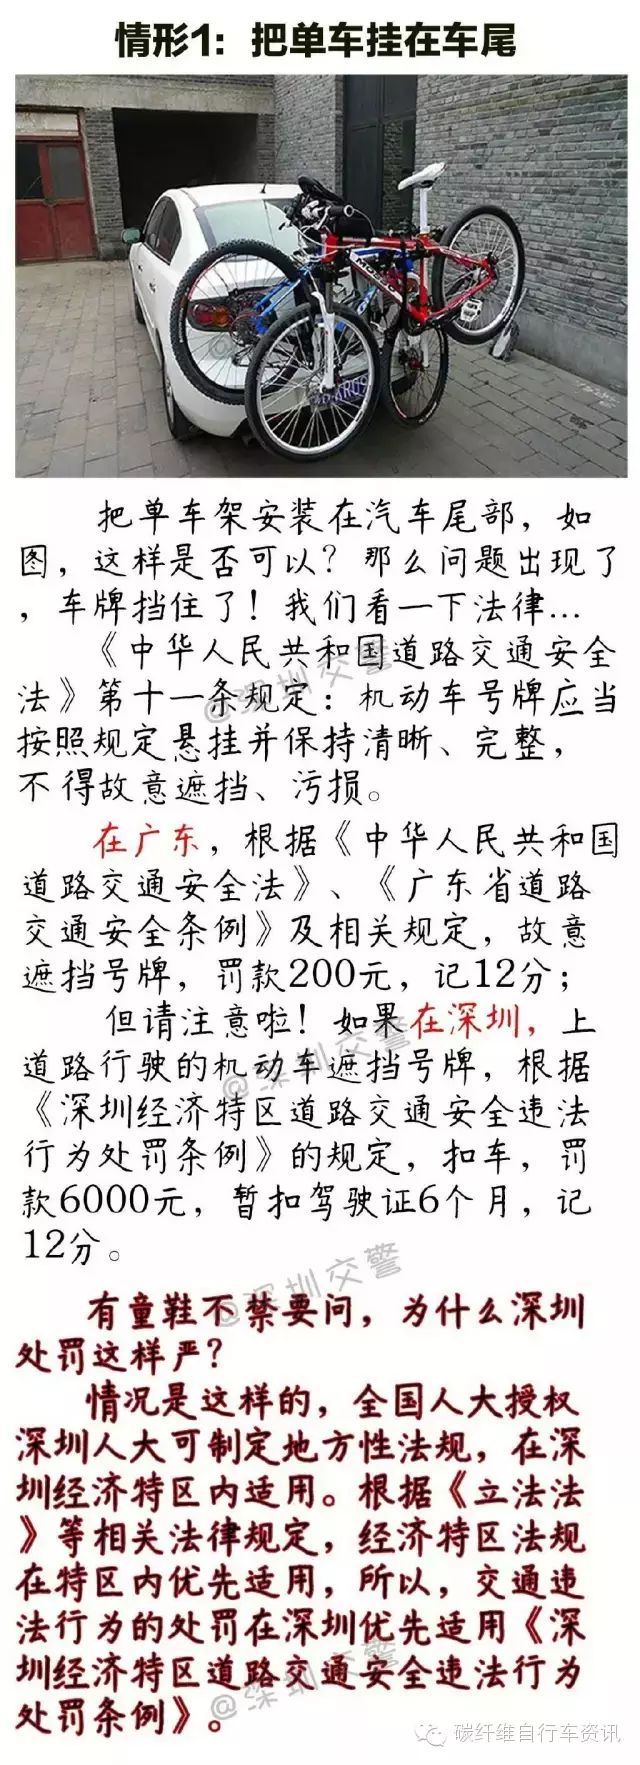 情形1：把单车挂在车尾
把单车架安装在汽车尾部，如
图，这样是否可以？那么问题出现了
，车牌挡住了！我们看一下法律...
《中华人民共和国道路交通安全
法》第十一条规定：机动车号牌应当
按照规定悬挂并保持清晰、完整，
不得故意遮挡、污损。
在广东，根据《中华人民共和国
道路交通安全法》、《广东省道路
交通安全条例》及相关规定，故意
遮挡号牌，罚款200元，记12分；
但请注意啦！如果在深圳，上
道路行驶的机动车遮挡号牌，根据
《深圳经济特区道路交通安全违法
行为处罚条例》的规定，扣车，罚
款6000元，暂扣驾驶证6个月，记
12分。
有童鞋不禁要问，为什么深圳
处罚这样严？
情况是这样的，全国人大授权
深圳人大可制定地方性法规，在深
圳经济特区内适用。根据《立法法
》等相关法律规定，经济特区法规
在特区内优先适用，所以，交通违
法行为的处罚在深圳优先适用《深
圳经济特区道路交通安全违法行为
处罚条例》。
@深圳交警
@深圳交警
@深圳交警
@深圳交警
碳纤维自行车资讯